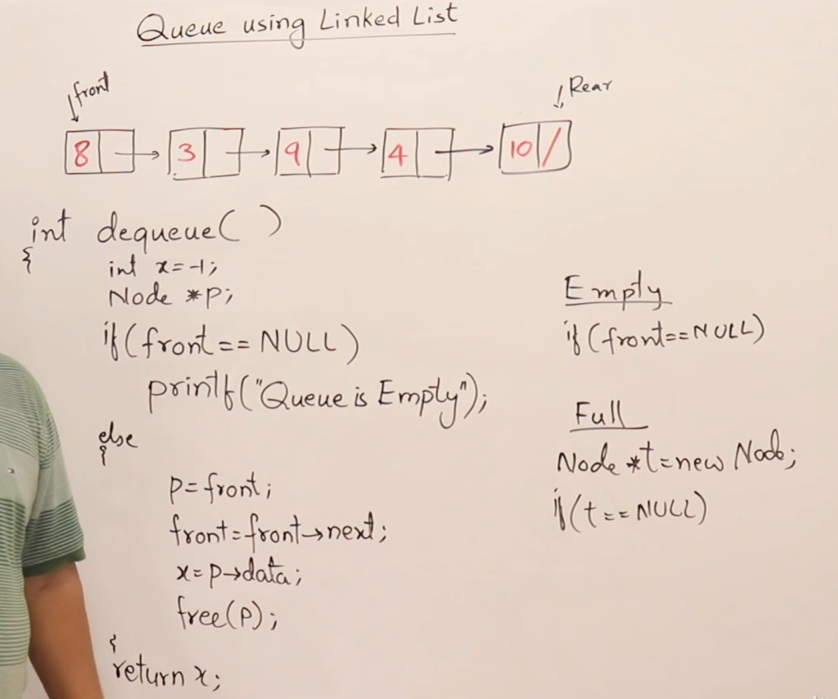 Queue using Linked List
front
Rear
8 3 9 4 10 /
int dequeue( )
{
int x=-1;
Node *p;
if(front==NULL)
printf("Queue is Empty");
else
{
p=front;
front=front→next;
x=p→data;
free(p);
{
return x;
Empty
if(front==NULL)
Full
Node *t=new Node;
if(t==NULL)